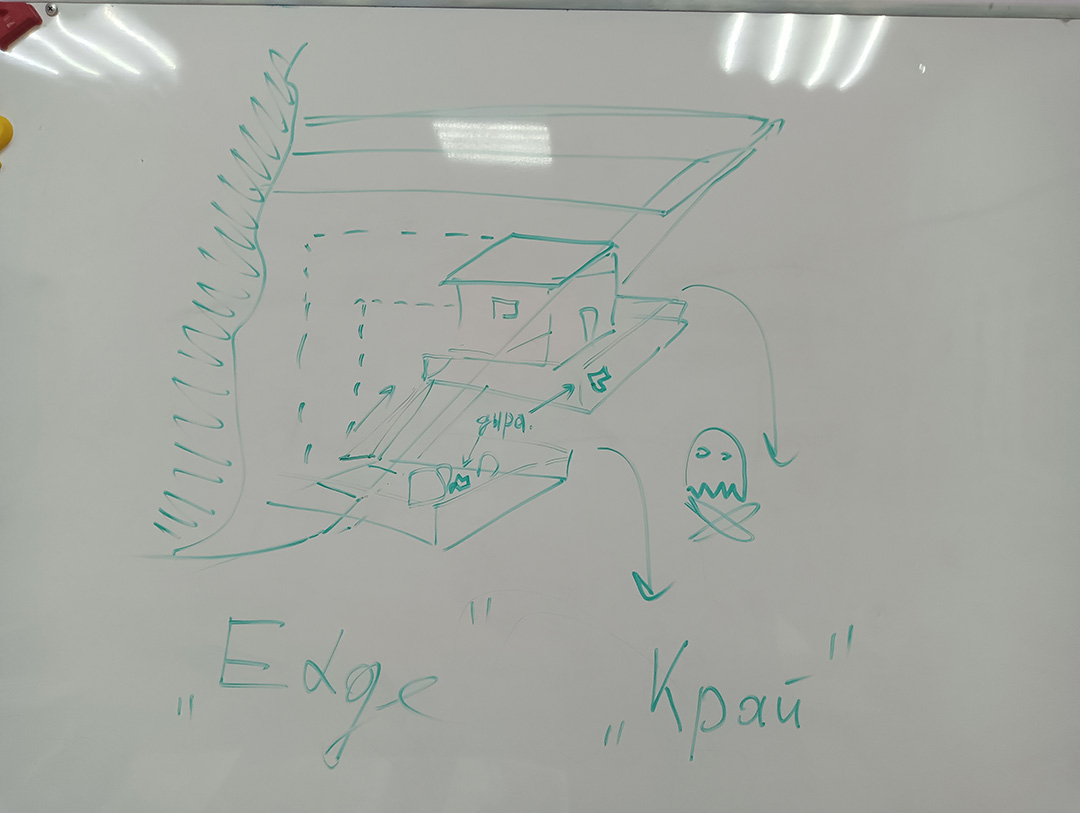 дыра.
„Edge"
„Край"